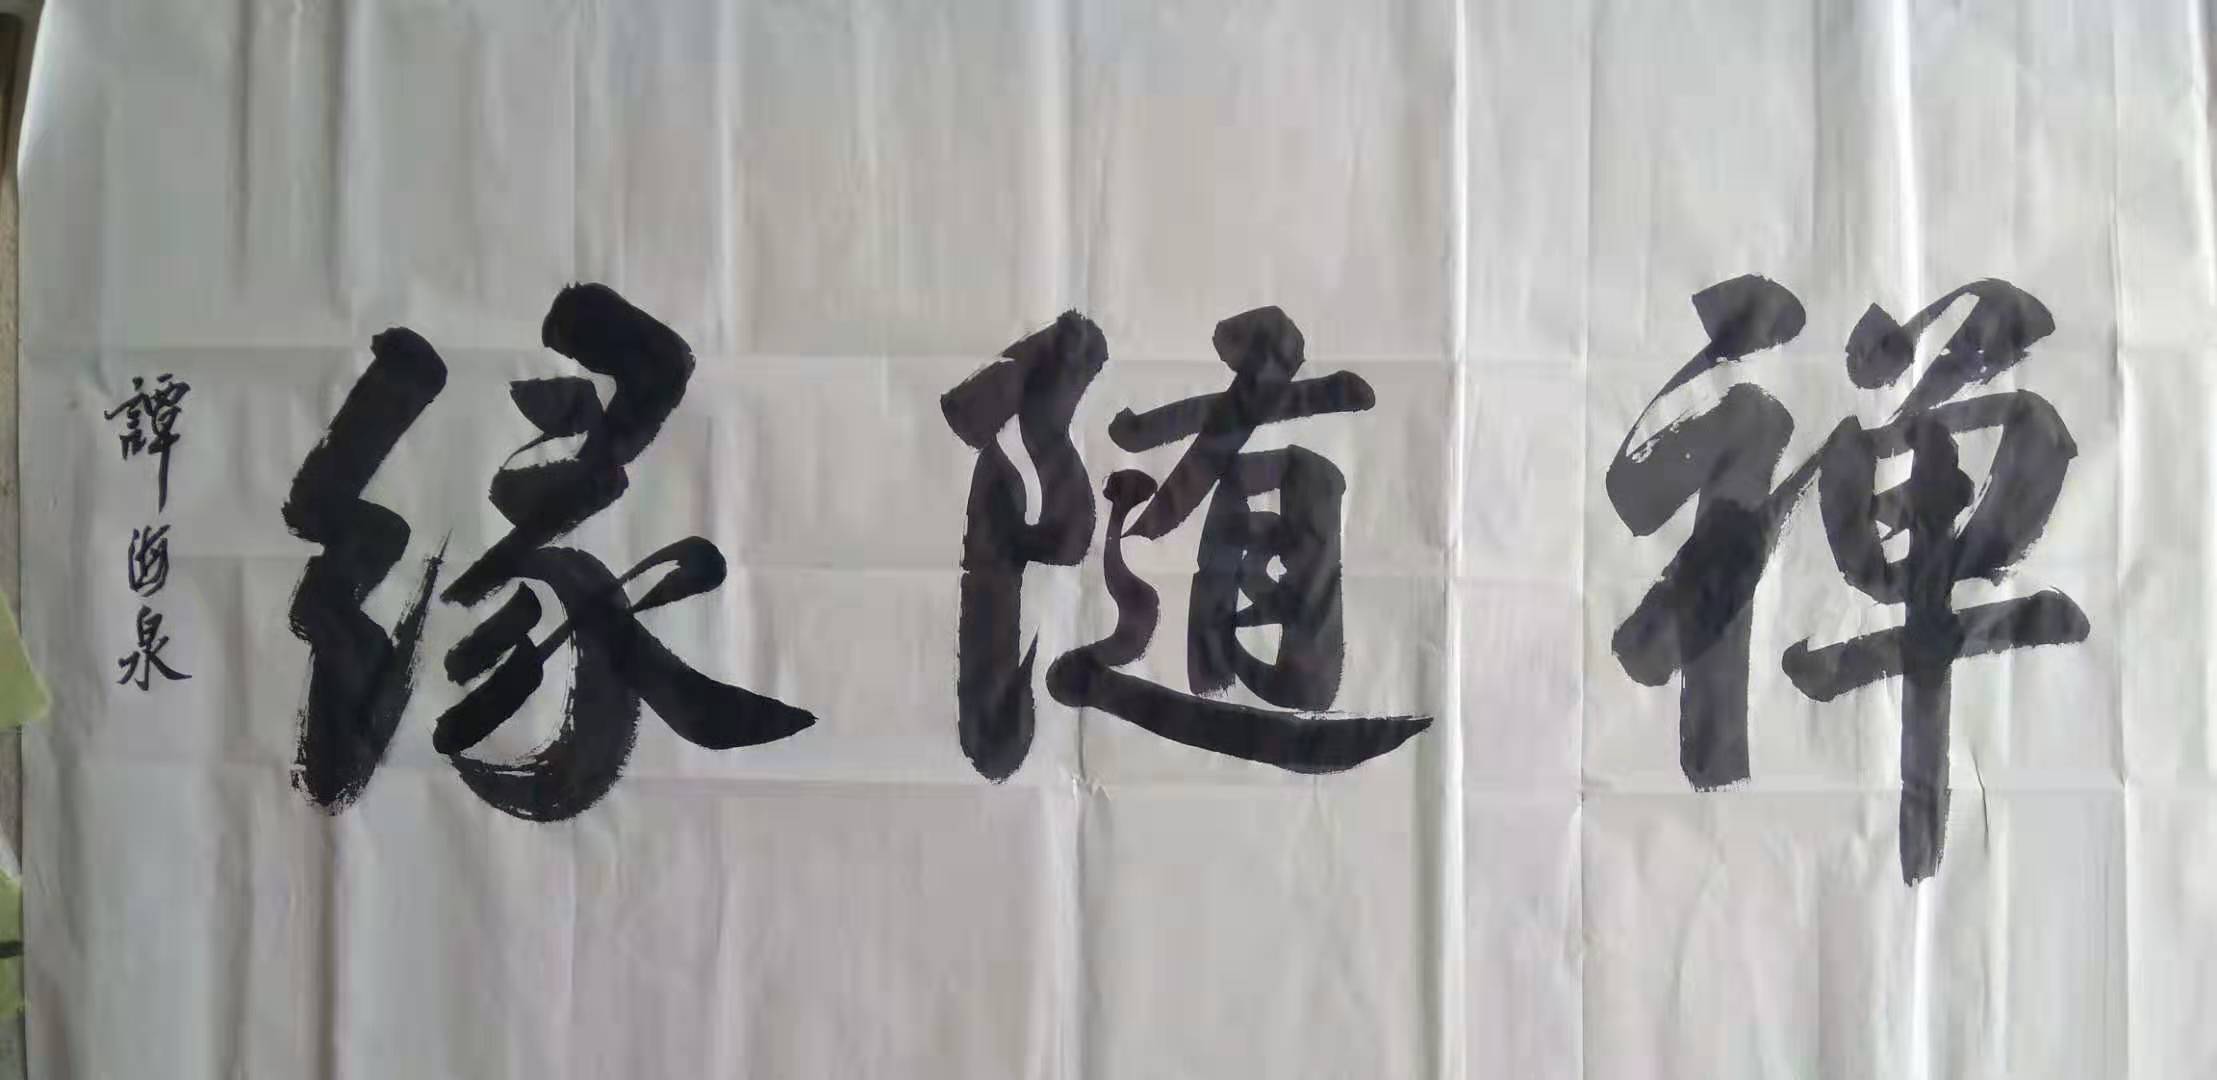 禅随缘
譚海泉